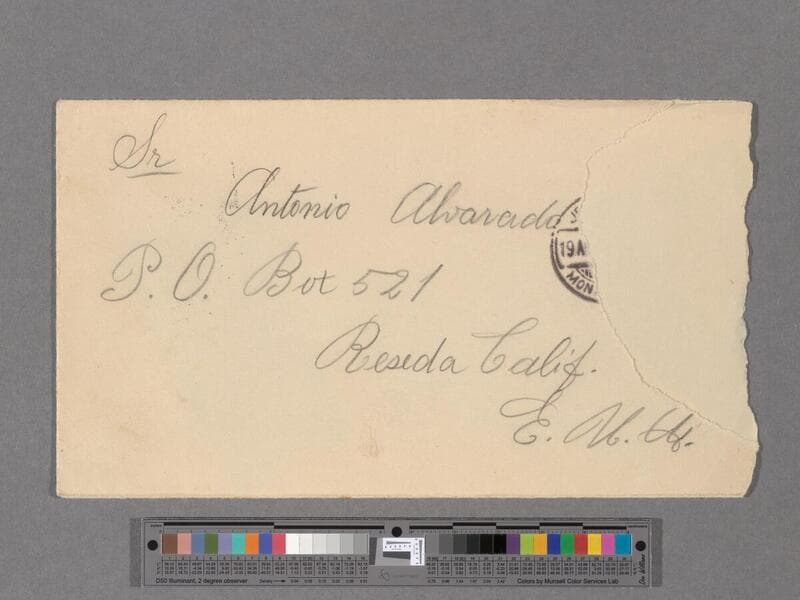 Sr
Antonio Alvarado
P. O. Box 521
Reseda Calif.
E. U. A.
19A
MON.
D50 Illuminant, 2 degree observer
Density
Colors by Munsell Color Services Lab